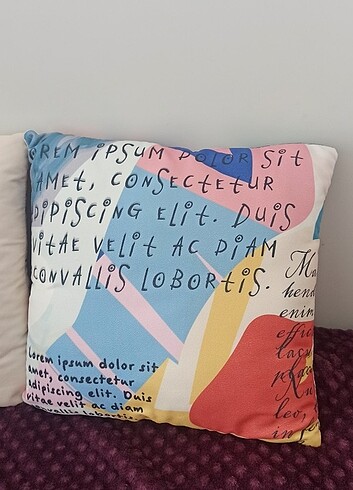 OREM IPSUM DOLOR SIT
AMET, CONSECTETUR
ADIPISCING ELIT. DUIS
VITAE VELIT AC DIAM
CONVALLIS LOBORTIS.
Lorem ipsum dolor sit
amet, consectetur
adipiscing elit. Duis
vitae velit ac diam
convallis lobortis
hend
enim
effic
lacu
leo,